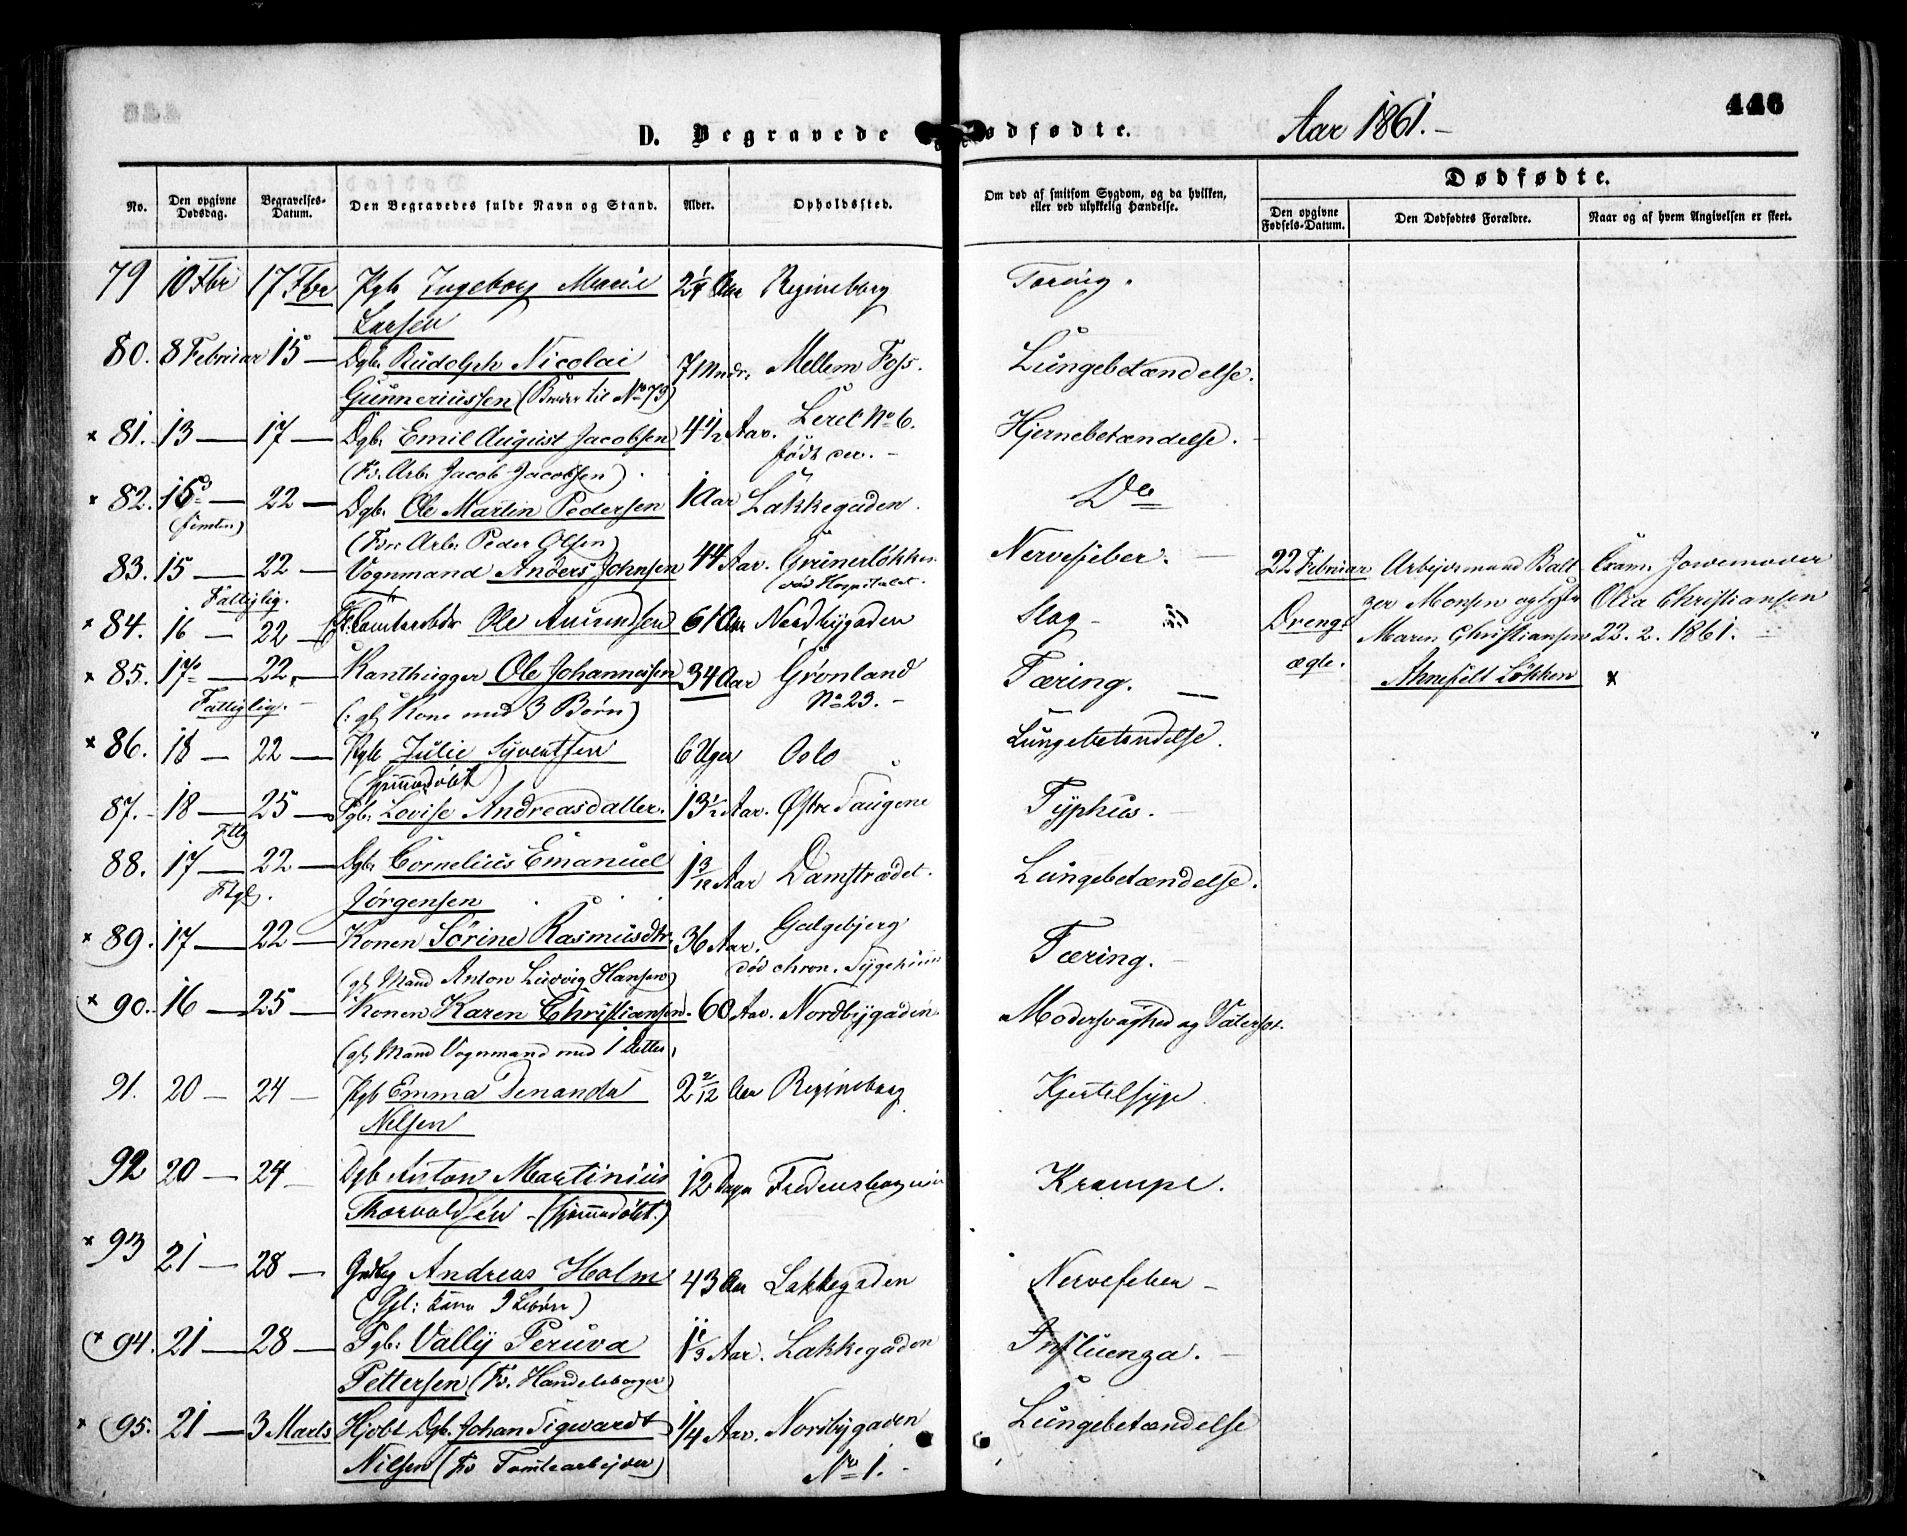 446
D. Begravede og Dødfødte. Aar 1861.
Dødfødte.
No. Den opgivne Dødsdag. Begravelses-Datum. Den Begravedes fulde Navn og Stand. Alder. Opholdssted. Om død af smitsom Sygdom, og da hvilken, eller ved ulykkelig Hændelse. Den opgivne Fødsels-Datum. Den Dødfødtes Forældre. Naar og af hvem Angivelsen er skeet.
79 10 Fbr 17 Fbr Pgb Ingeborg Marie 2 1/4 Aar Regineborg
Larsen
80. 8 Februar 15 — Dgb. Rudolph Nicolai 7 Mndr. Mellem Foss. Lungebetændelse.
Gunneriussen (Broder til No 73)
x 81. 13 — 17 — Dgb. Emil August Jacobsen 4 1/2 Aar. Leret No 6. Hjernebetændelse.
(Fr. Arb. Jacob Jacobsen) født der. -
x 82. 15d — 22 — Dgb. Ole Martin Pedersen 1 Aar Lakkegaden. Do
(femten) (For: Arb. Peder Olsen)
83. 15 — 22 — Vognmand Anders Johnsen 44 Aar. Grünerløkken Nervefeber. —
Fattiglig. (død Hospitalet.
22 Februar Arbeidsmand Balt Exam. Jordemoder
zer Monsen og Olia Christiansen
x 84. 16 — 22 — Ole Amundsen 61 Aar Nordbygaden Slag -
Dreng Maren Christiansen 22. 2. 1861.
ægte.
x 85. 17 — 22. — Kanthugger Ole Johannesen 34 Aar Grønland Tæring. —
Løkken x
Fattiglig. - (: gl Kone med 3 Børn) No 23. -
x 86. 18 — 22 — Pgb Julie Syvertsen 6 Uger Oslo Lungebetændelse.
(hjemmedøbt)
87. - 18 — 25 — Pgb. Lovise Andreasdatter. 13 1/2 Aar. Østre Typhus. -
Fllg
88. 17 — 22 — Dgb. Cornelius Emanuel 1 3/12 Aar Damstrædet. Lungebetændelse.
Ftgl. Jørgensen
x 89. 17 — 22 — Konen Sörine Rasmusdtr. 36 Aar. Galgebjerg Tæring. -
(gl Mand Anton Ludvig Hansen) død chron. Sygehuus
(x 90. 16 — 25 — Konen Karen Christiansen. 60 Aar. Nordbygaden. Modersvaghed og Vatersot.
(gl Mand Vognmand med 1 datter)
91. 20 — 24 — Pgb Emma Denanda 2 2/12 Aar Regineborg Kjertelsyge
Nelsen
92 20 — 24 — Dgb Anton Martinius 12 Dage Krampe.
Thorvaldsen - (hjemmedøbt.)
x 93 21 — 28 — Andreas Holm 43 Aar Lakkegaden Nervefeber -
(x 94. 21 — 28 — Pgb: Vally Peruva 1 1/3 Aar. Lakkegaden Influenza. -
Pettersen (Fr. Handelsborger)
x (95. 21 — 3 Marts Hjdbt Dgb. Johan Sigwardt 1/4 Aar. Nordbygaden Lungebetændelse
Nilsen (Fr Tomtearbejder) No 1. -